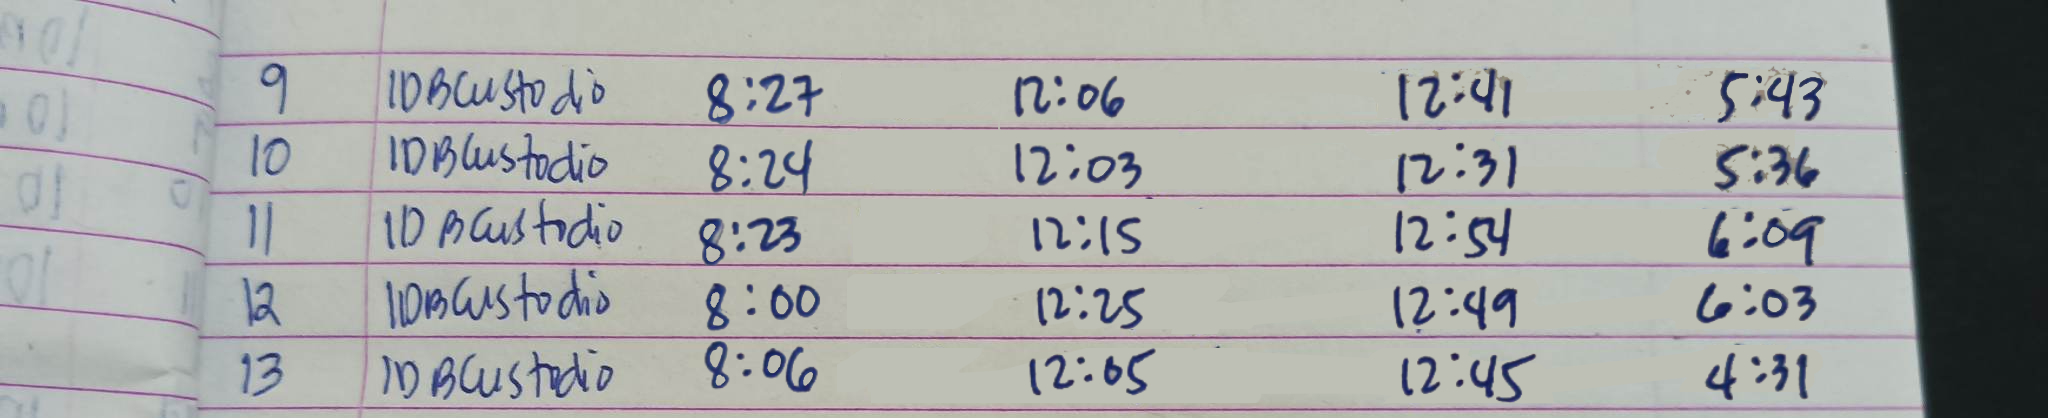 9 IDBCustodio 8:27 12:06 12:41 5:43
10 IDBCustodio 8:24 12:03 12:31 5:36
11 IDBCustodio 8:23 12:15 12:54 6:09
12 IDBCustodio 8:00 12:25 12:49 6:03
13 IDBCustodio 8:06 12:05 12:45 4:31